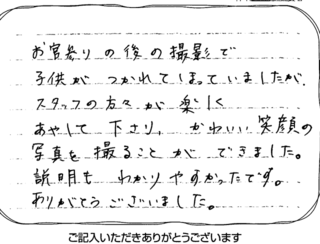 お宮参りの後の撮影で
子供が つかれてしまっていましたが、
スタッフの方々が 楽しく
あやして 下さり、かわいい 笑顔の
写真を 撮ることが できました。
説明も わかりやすかったです。
ありがとう ございました。
ご記入いただきありがとうございます